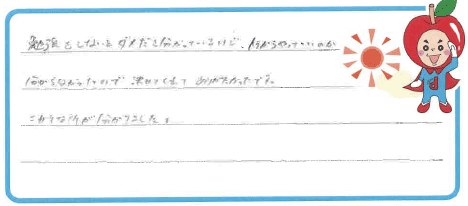 勉強をしないとダメだと分かっているけど、何からやっていいのか
分からなかったので決めてくれて ありがたかったです。
ニガテな所が分かりました。